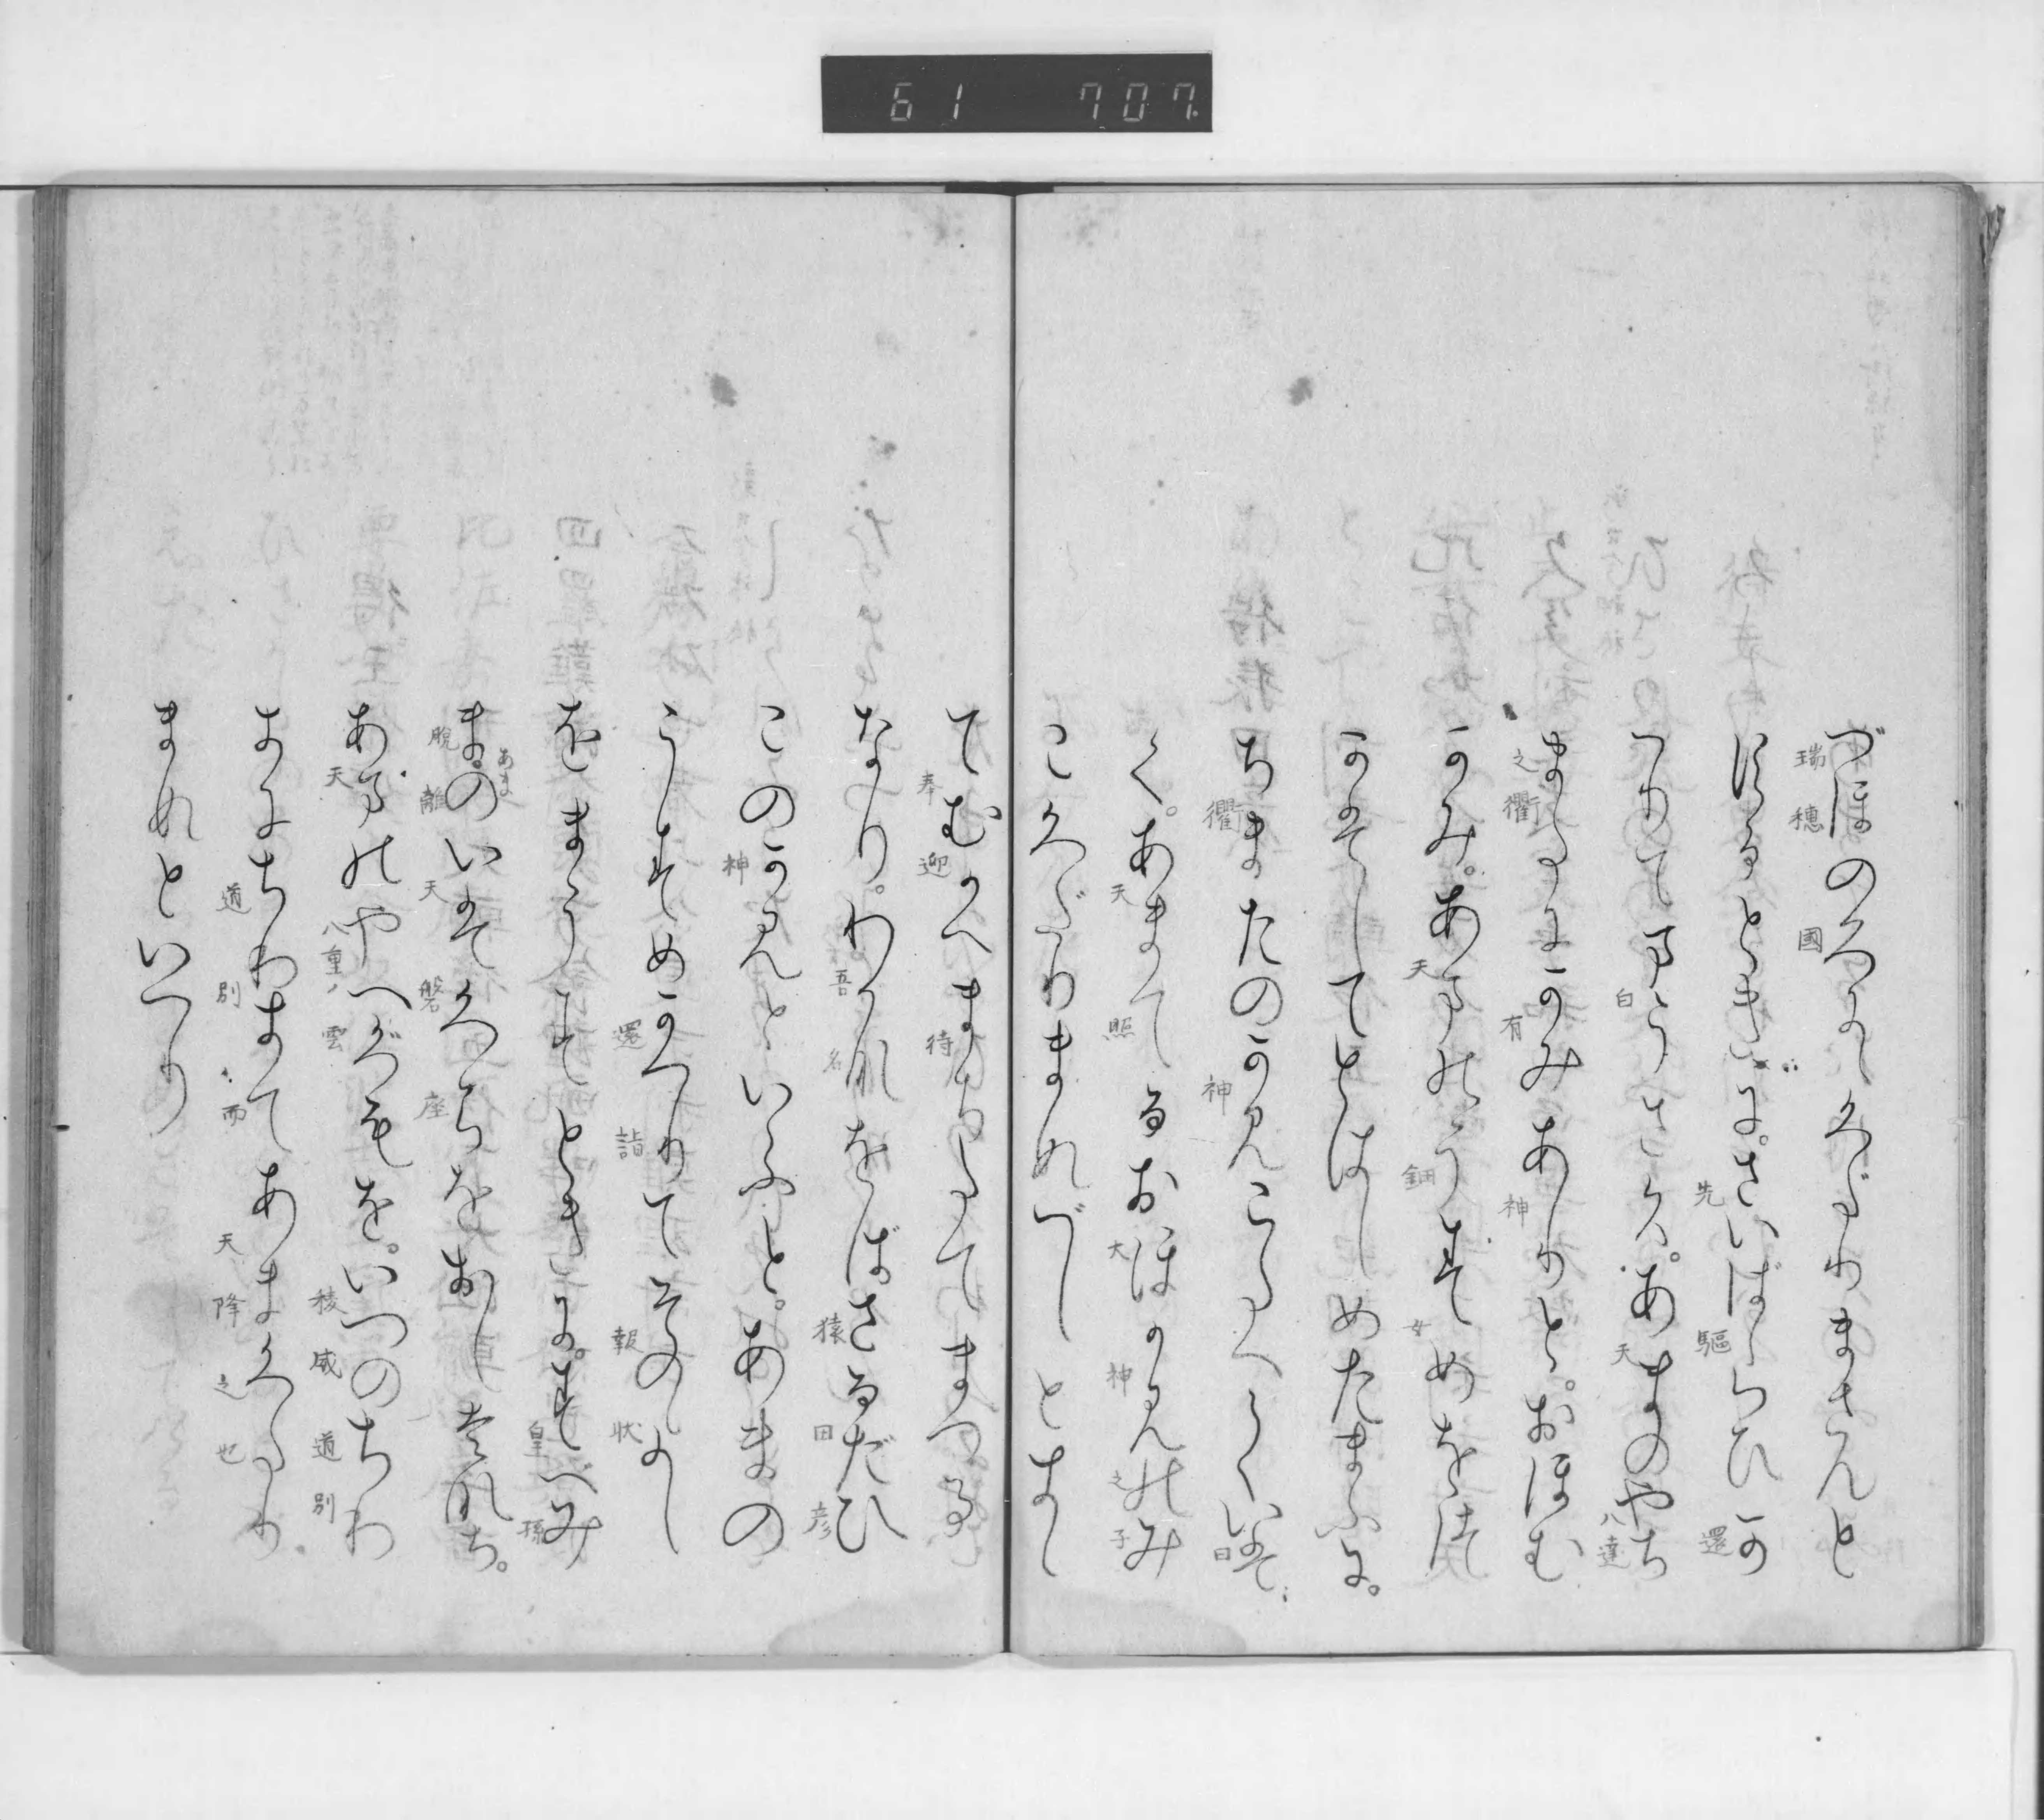 61 707
づほのくにゝくだりまさんと
瑞穗 國
するときに。さいばらひか
先驅 還
へりてまうさく。あまのやち
白 天 八達
またにかみありと。おほむ
之衢 有 神
かみ。あまのうずめをつ
天 鈿 女
かはしてとはしめたまふに。
ちまたのかみこたへていは
衢 神 曰
く。あまてるおほかみのみ
天照 大神之子
こくだりますべしときゝ
てむかへまちたてまつる
奉迎 待
なり。わがなをばさるだひ
吾名 猿田彦
このかみといふと。あまの
神
うずめかへりてそのよし
還詣 報状
をまうすときに。すべみ
皇孫
まのあまのいはくらをおしはなち。
脱離 天磐座
あまのやへぐもを。いつのちわ
天 八重ノ雲 稜威 道別
きにちわきてあまくだり
道別 而 天降之也
ますといへり